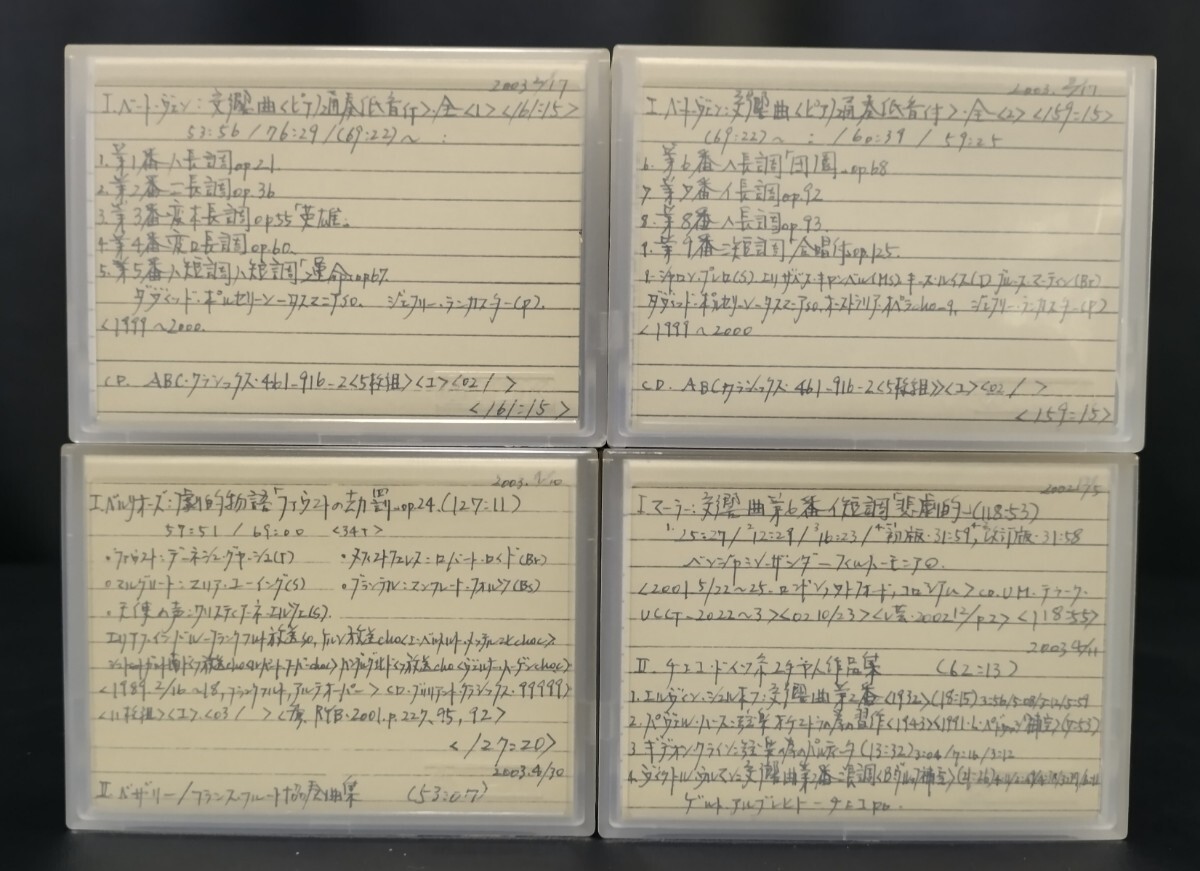 2003 2/17
I.ベートーヴェン:交響曲<ピアノ通奏低音付>.全<1><161:15>
53:56 / 76:29 / (69:22)~ :
1.第1番ハ長調op.21.
2.第2番ニ長調op.36
3.第3番変ホ長調op55「英雄」
4.第4番変ロ長調op.60.
5.第5番ハ短調ハ短調「運命」op67.
ダヴィッド・ポルセリーンータスマニアSO. ジェフリー・ランカスター(P).
<1999~2000.
CD. ABC.クラシックス.461-916-2<5枚組><I><02 / >
<161:15>
2003. 2/17
I.ベートーヴェン:交響曲<ピアノ通奏低音付>.全<2><159:15>
(69:22)~ : / 60:39 / 59:25
6.第6番ヘ長調「田園」op.68
7.第7番イ長調op.92
8.第8番ヘ長調op.93.
9.第9番ニ短調「合唱付」op.125.
シャロン・プレロ(S).エリザベス・キャンベル(MS)キース・ルイス(T)ブルース・マーティン(Br)
ダヴィッド・ポルセリーンータスマニアSO.オーストラリア・オペラ-cho. ジェフリー・ランカスター(P)
<1999~2000
CD. ABCクラシックス.461-916-2<5枚組><I><02 / >
<159:15>
2003.
I.ベルリオーズ:劇的物語「ファウストの劫罰」op24.(127:11)
57:51 / 69:20 <34T>
・ファウスト:デーネシュ・グヤーシュ(T) ・メフィストフェレス:ロバート・ロイド(Br)
・マルグリート:マリア・ユーイング(S) ・ブランデル:マンフレート・フォルツ(Bs)
・天使の声:クリスティアーネ・エルツェ(S).
エリアフ・インバルーフランクフルト放送SO,ケルン放送cho
<1989.2/16~18,フランクフルト,アルテ・オーパー> CD.ブリリアント・クラシックス.99999>
<11枚組><I>.<03 / > 2001.p.227、95,92>
<127:20>
2003.4/30
II.ベザリー/フランス・フルート協奏曲集 (53:07)
2002 12/5
I.マーラー:交響曲第6番イ短調「悲劇的」(118:53)
25:27/ 12:29/ 16:23/ 初版・31:59, 改訂版・31:58
ベンジャミン・ザンダーーフィルハーモニアO.
<2001.5/22~25.ロンドン,ワトフォード,コロシアム> CD.UM-テラーク.
UCCT-2022~3><0210/23><V芸.200212/p2> <118:55>
2003
II.チェコ・ドイツ系ユダヤ人作品集 (62:13)
1.エルヴィン・シュルホフ:交響曲第2番<1932>(18:15)3:56/5:08/3:12/5:59
2.パヴェル・ハース:弦楽オケストラの為の習作<1943><1991.補完>
3.ギデオン・クライン:弦楽の為のパルティータ(13:32)3:04/7:16/3:12
4.ヴィクトル・ウルマン:交響曲第2番ニ長調<Bヴルフ補完>
ゲルト・アルブレヒトーチェコPO.